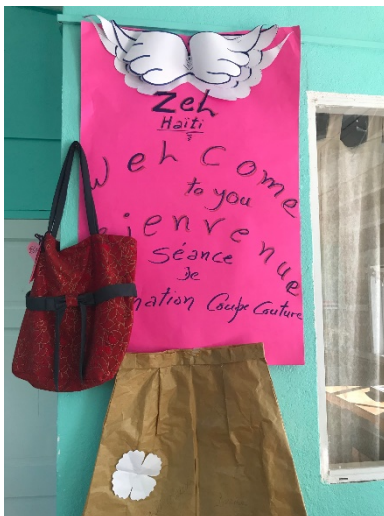 Zel
Haïti
Wel Come
to you
Bienvenue
Séance
de
mation Coupe Couture